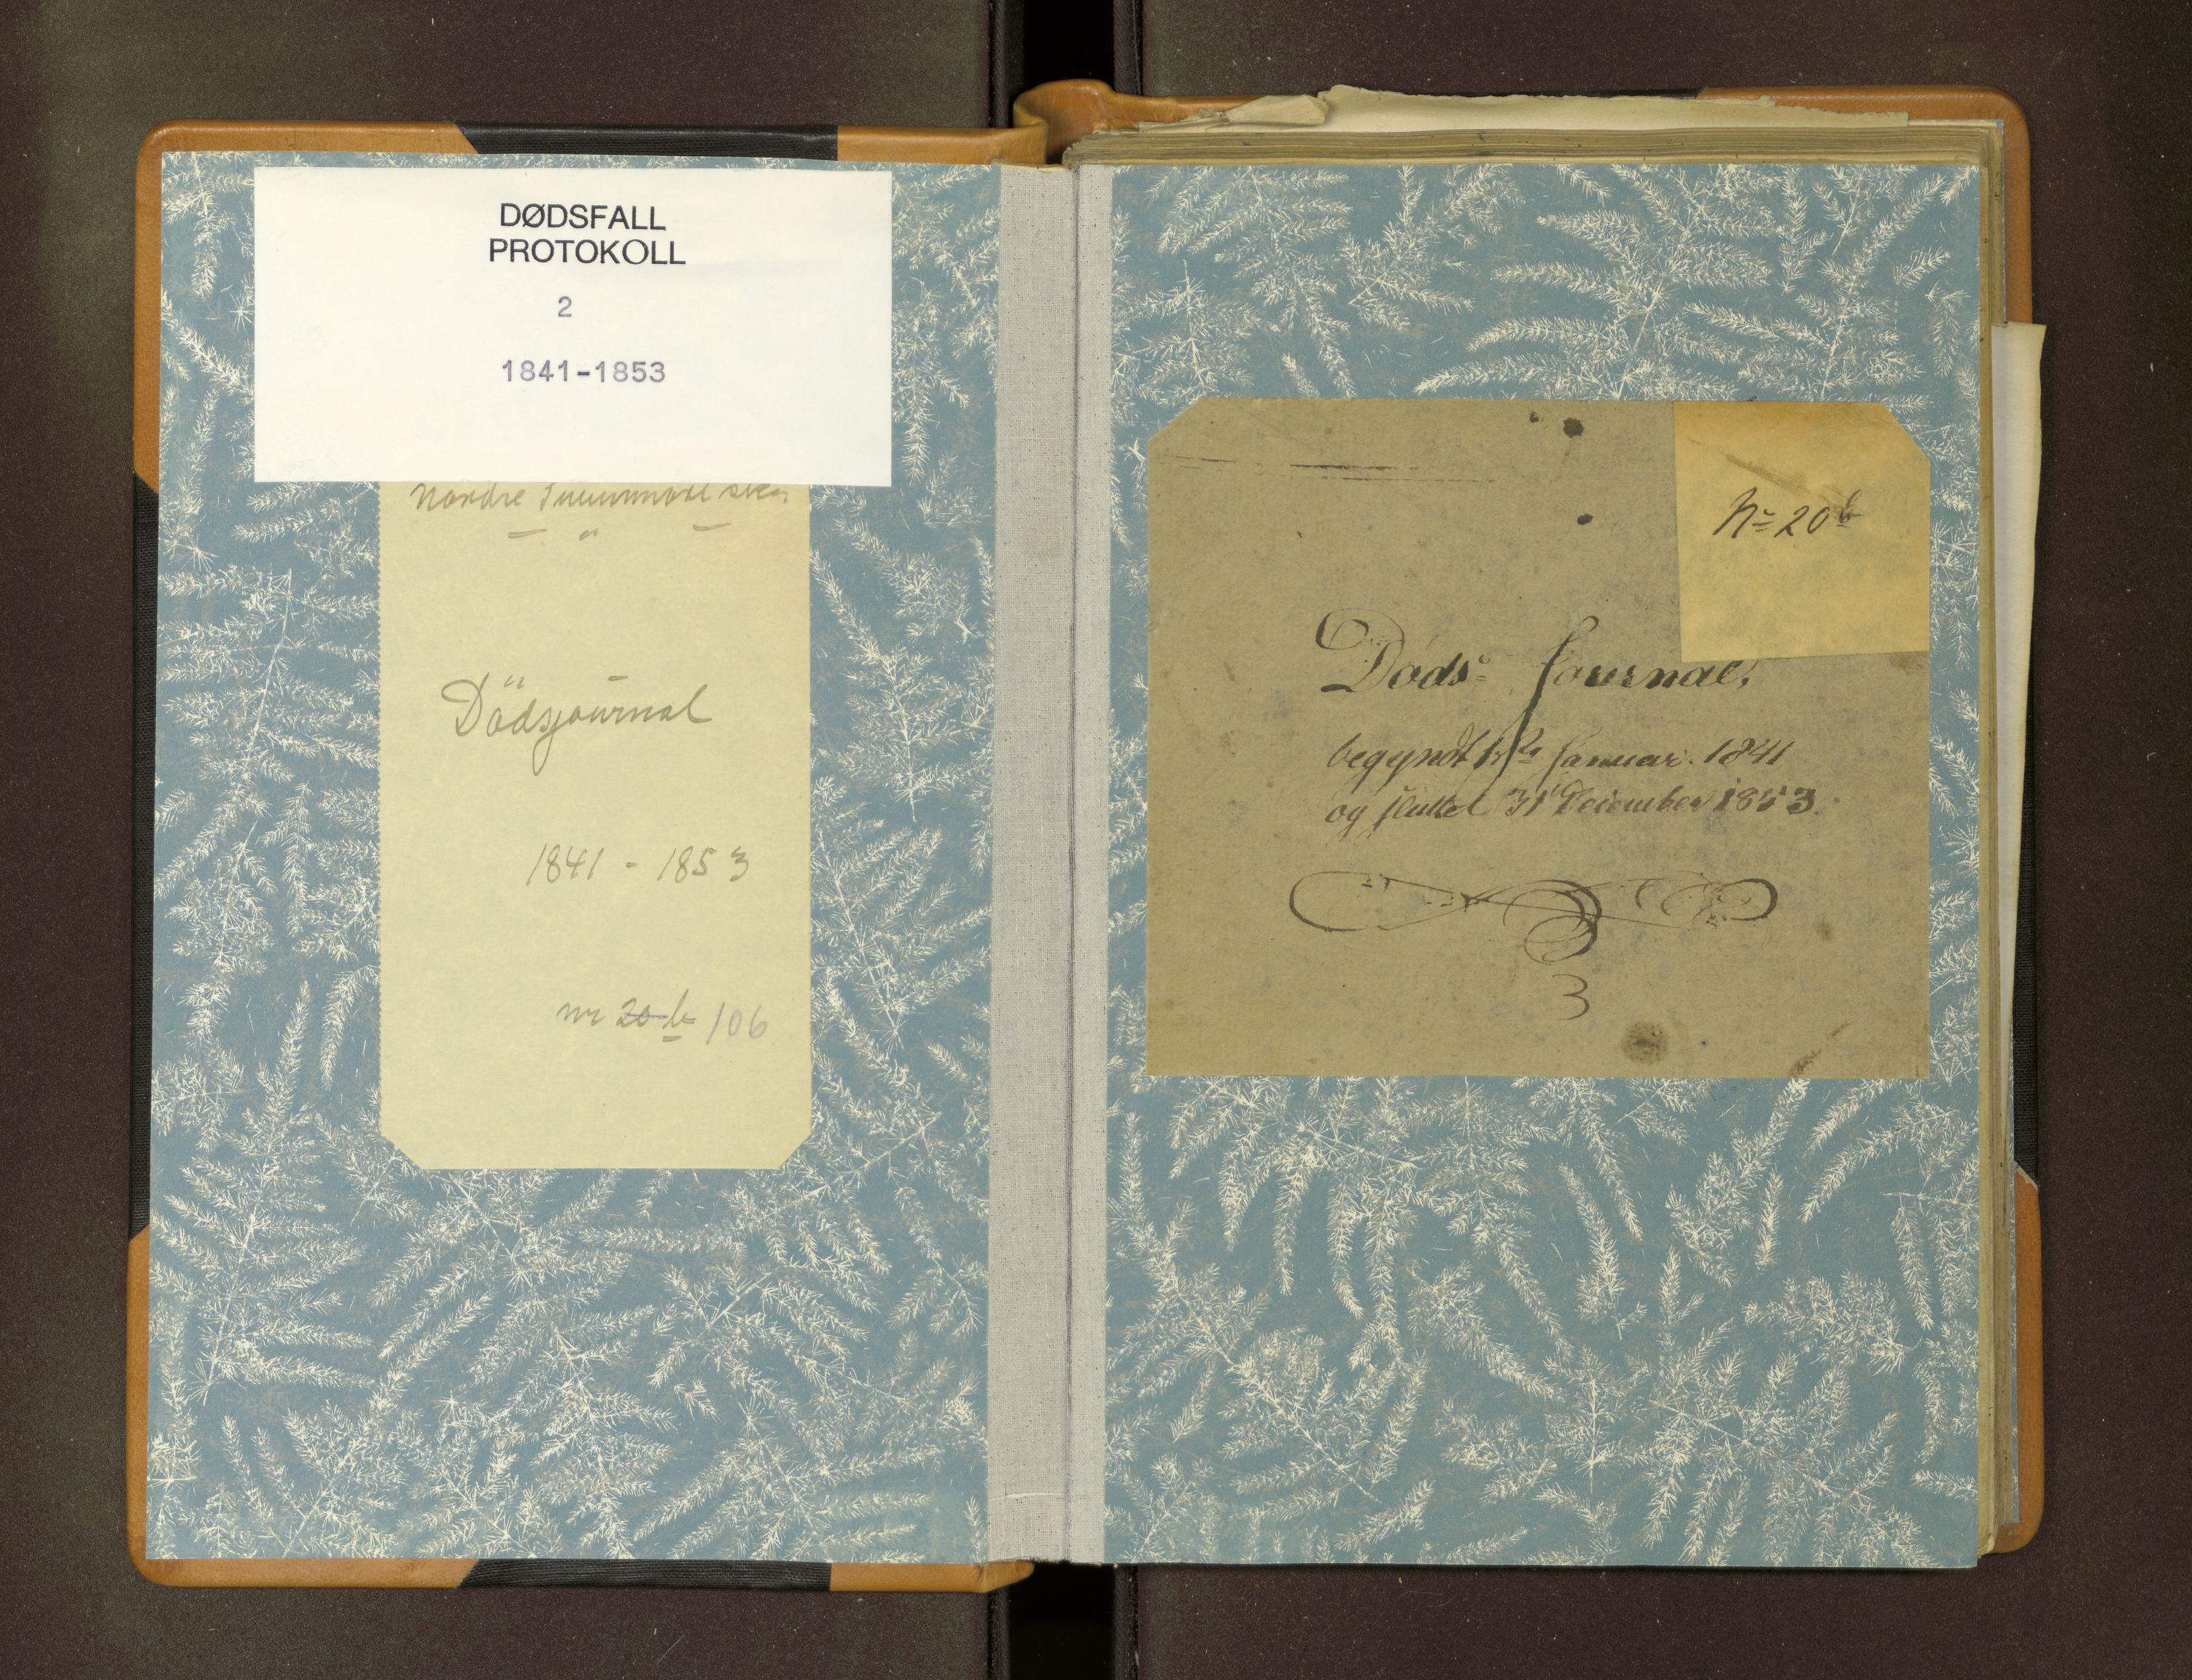 DØDSFALL
PROTOKOLL
2
1841-1853
Nordre Sunnmøre
Dödsjournal
1841 - 1853
nr 20 b 106
No 20 b
Døds- Journal,
begyndt Januar 1841
og sluttet 31 December 1853.
3